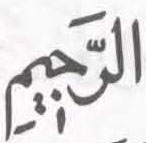 الرَّحِيمِ